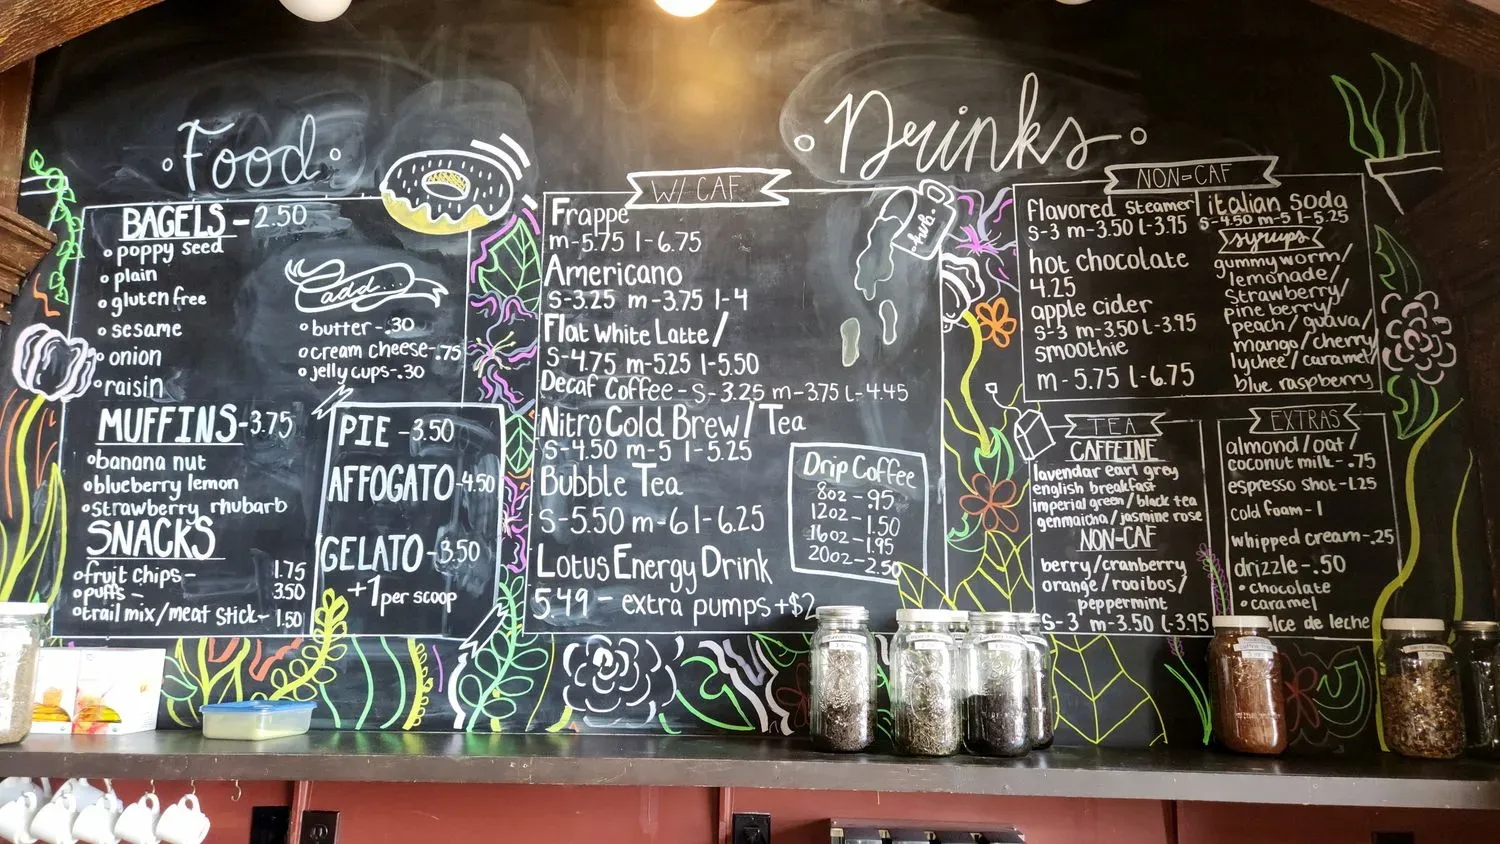 Food
BAGELS - 2.50
poppy seed
plain
gluten free
sesame
onion
raisin
add...
butter - .30
cream cheese - .75
jelly cups - .30
MUFFINS - 3.75
banana nut
blueberry lemon
strawberry rhubarb
SNACKS
fruit chips - 1.75
puffs - 3.50
trail mix/meat stick - 1.50
PIE - 3.50
AFFOGATO - 4.50
GELATO - 3.50
+1 per scoop
Drinks
W/ CAF
Frappe
m-5.75 l-6.75
Americano
s-3.25 m-3.75 l-4
Flat White Latte/
s-4.75 m-5.25 l-5.50
Decaf Coffee - s-3.25 m-3.75 l-4.45
Nitro Cold Brew/Tea
s-4.50 m-5 l-5.25
Bubble Tea
s-5.50 m-6 l-6.25
Lotus Energy Drink
5.49 - extra pumps +$2
Drip Coffee
8oz - .95
12oz - 1.50
16oz - 1.95
20oz - 2.50
hub.
NON-CAF
flavored steamer/italian soda
s-3 m-3.50 l-3.95 s-4.50 m-5 l-5.25
hot chocolate
4.25
apple cider
s-3 m-3.50 l-3.95
smoothie
m-5.75 l-6.75
syrups
gummy worm/
lemonade/
strawberry/
pine berry/
peach/guava/
mango/cherry
lychee/caramel/
blue raspberry
TEA
CAFFEINE
lavendar earl grey
english breakfast
imperial green/black tea
genmaicha/jasmine rose
NON-CAF
berry/cranberry
orange/rooibos/
peppermint
s-3 m-3.50 l-3.95
EXTRAS
almond/oat/
coconut milk - .75
espresso shot - 1.25
cold foam - 1
whipped cream - .25
drizzle - .50
chocolate
caramel
lce de leche